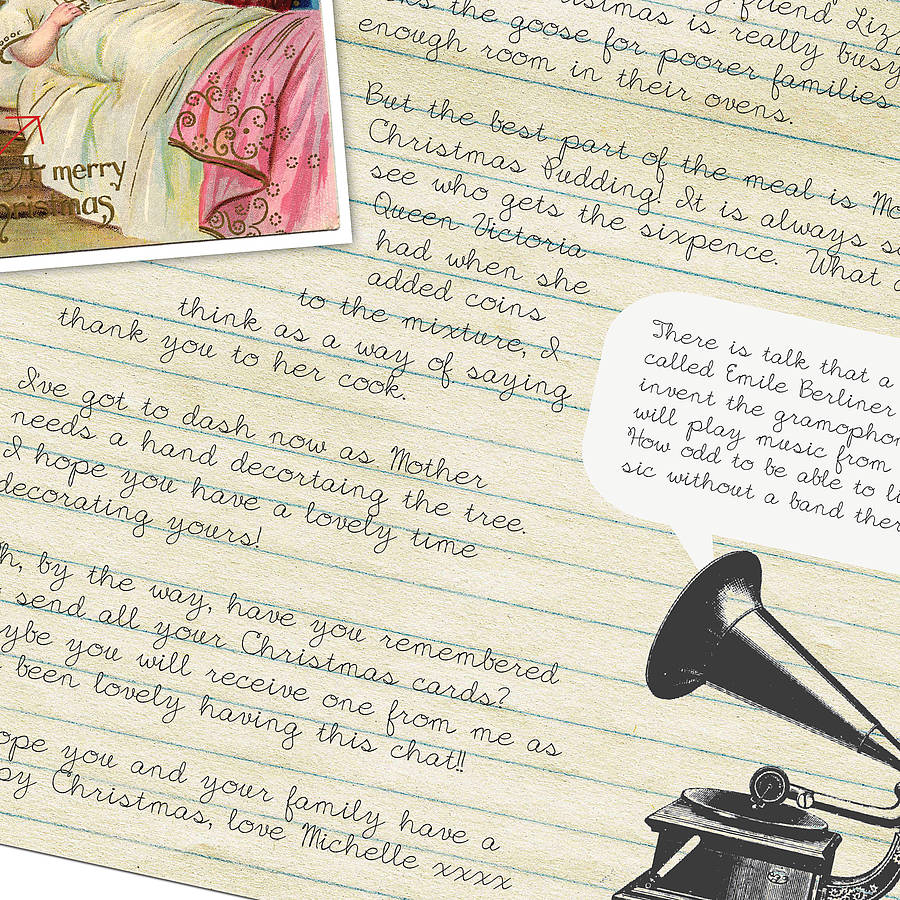 friend Liz
Christmas is really busy
the goose for poorer families
enough room in their ovens.
But the best part of the meal is
Christmas Pudding! It is always
see who gets the sixpence. What
Queen Victoria
had when she
added coins
to the mixture, I
think as a way of saying
thank you to her cook.
I've got to dash now as Mother
needs a hand decortaing the tree.
I hope you have a lovely time
decorating yours!
by the way, have you remembered
send all your Christmas cards?
you will receive one from me as
been lovely having this chat!!
you and your family have a
Christmas, love Michelle xxxx
A merry
Christmas
There is talk that a
called Emile Berliner
invent the
will play music from
How odd to be able to
sic without a band